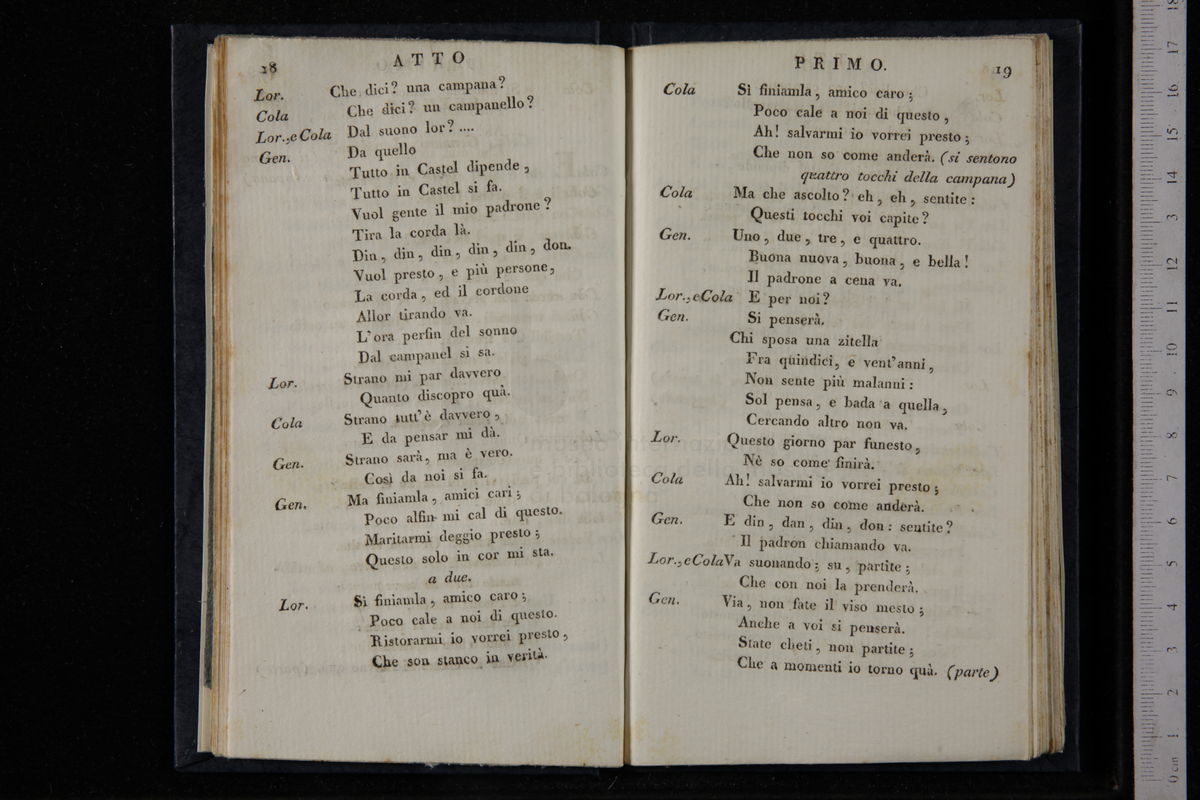 18
ATTO
Lor. Che dici? una campana?
Cola Che dici? un campanello?
Lor., e Cola Dal suono lor? ....
Gen. Da quello
Tutto in Castel dipende,
Tutto in Castel si fa.
Vuol gente il mio padrone?
Tira la corda là.
Din, din, din, din, din, don.
Vuol presto, e più persone,
La corda, ed il cordone
Allor tirando va.
L'ora perfin del sonno
Dal campanel si sa.
Lor. Strano mi par davvero
Quanto discopro quà.
Cola Strano tutt'è davvero,
E da pensar mi dà.
Gen. Strano sarà, ma è vero.
Così da noi si fa.
Gen. Ma finiamla, amici cari;
Poco alfin mi cal di questo.
Maritarmi deggio presto;
Questo solo in cor mi sta.
a due.
Lor. Sì finiamla, amico caro;
Poco cale a noi di questo.
Ristorarmi io vorrei presto,
Che son stanco in verità.
PRIMO.
19
Cola Sì finiamla, amico caro;
Poco cale a noi di questo,
Ah! salvarmi io vorrei presto;
Che non so come anderà. (si sentono
quattro tocchi della campana)
Cola Ma che ascolto? eh, eh, sentite:
Questi tocchi voi capite?
Gen. Uno, due, tre, e quattro.
Buona nuova, buona, e bella!
Il padrone a cena va.
Lor., e Cola E per noi?
Gen. Si penserà.
Chi sposa una zitella
Fra quindici, e vent'anni,
Non sente più malanni:
Sol pensa, e bada a quella,
Cercando altro non va.
Lor. Questo giorno par funesto,
Nè so come finirà.
Cola Ah! salvarmi io vorrei presto;
Che non so come anderà.
Gen. E din, dan, din, don: sentite?
Il padron chiamando va.
Lor., e Cola Va suonando; su, partite;
Che con noi la prenderà.
Gen. Via, non fate il viso mesto;
Anche a voi si penserà.
State cheti, non partite;
Che a momenti io torno quà. (parte)